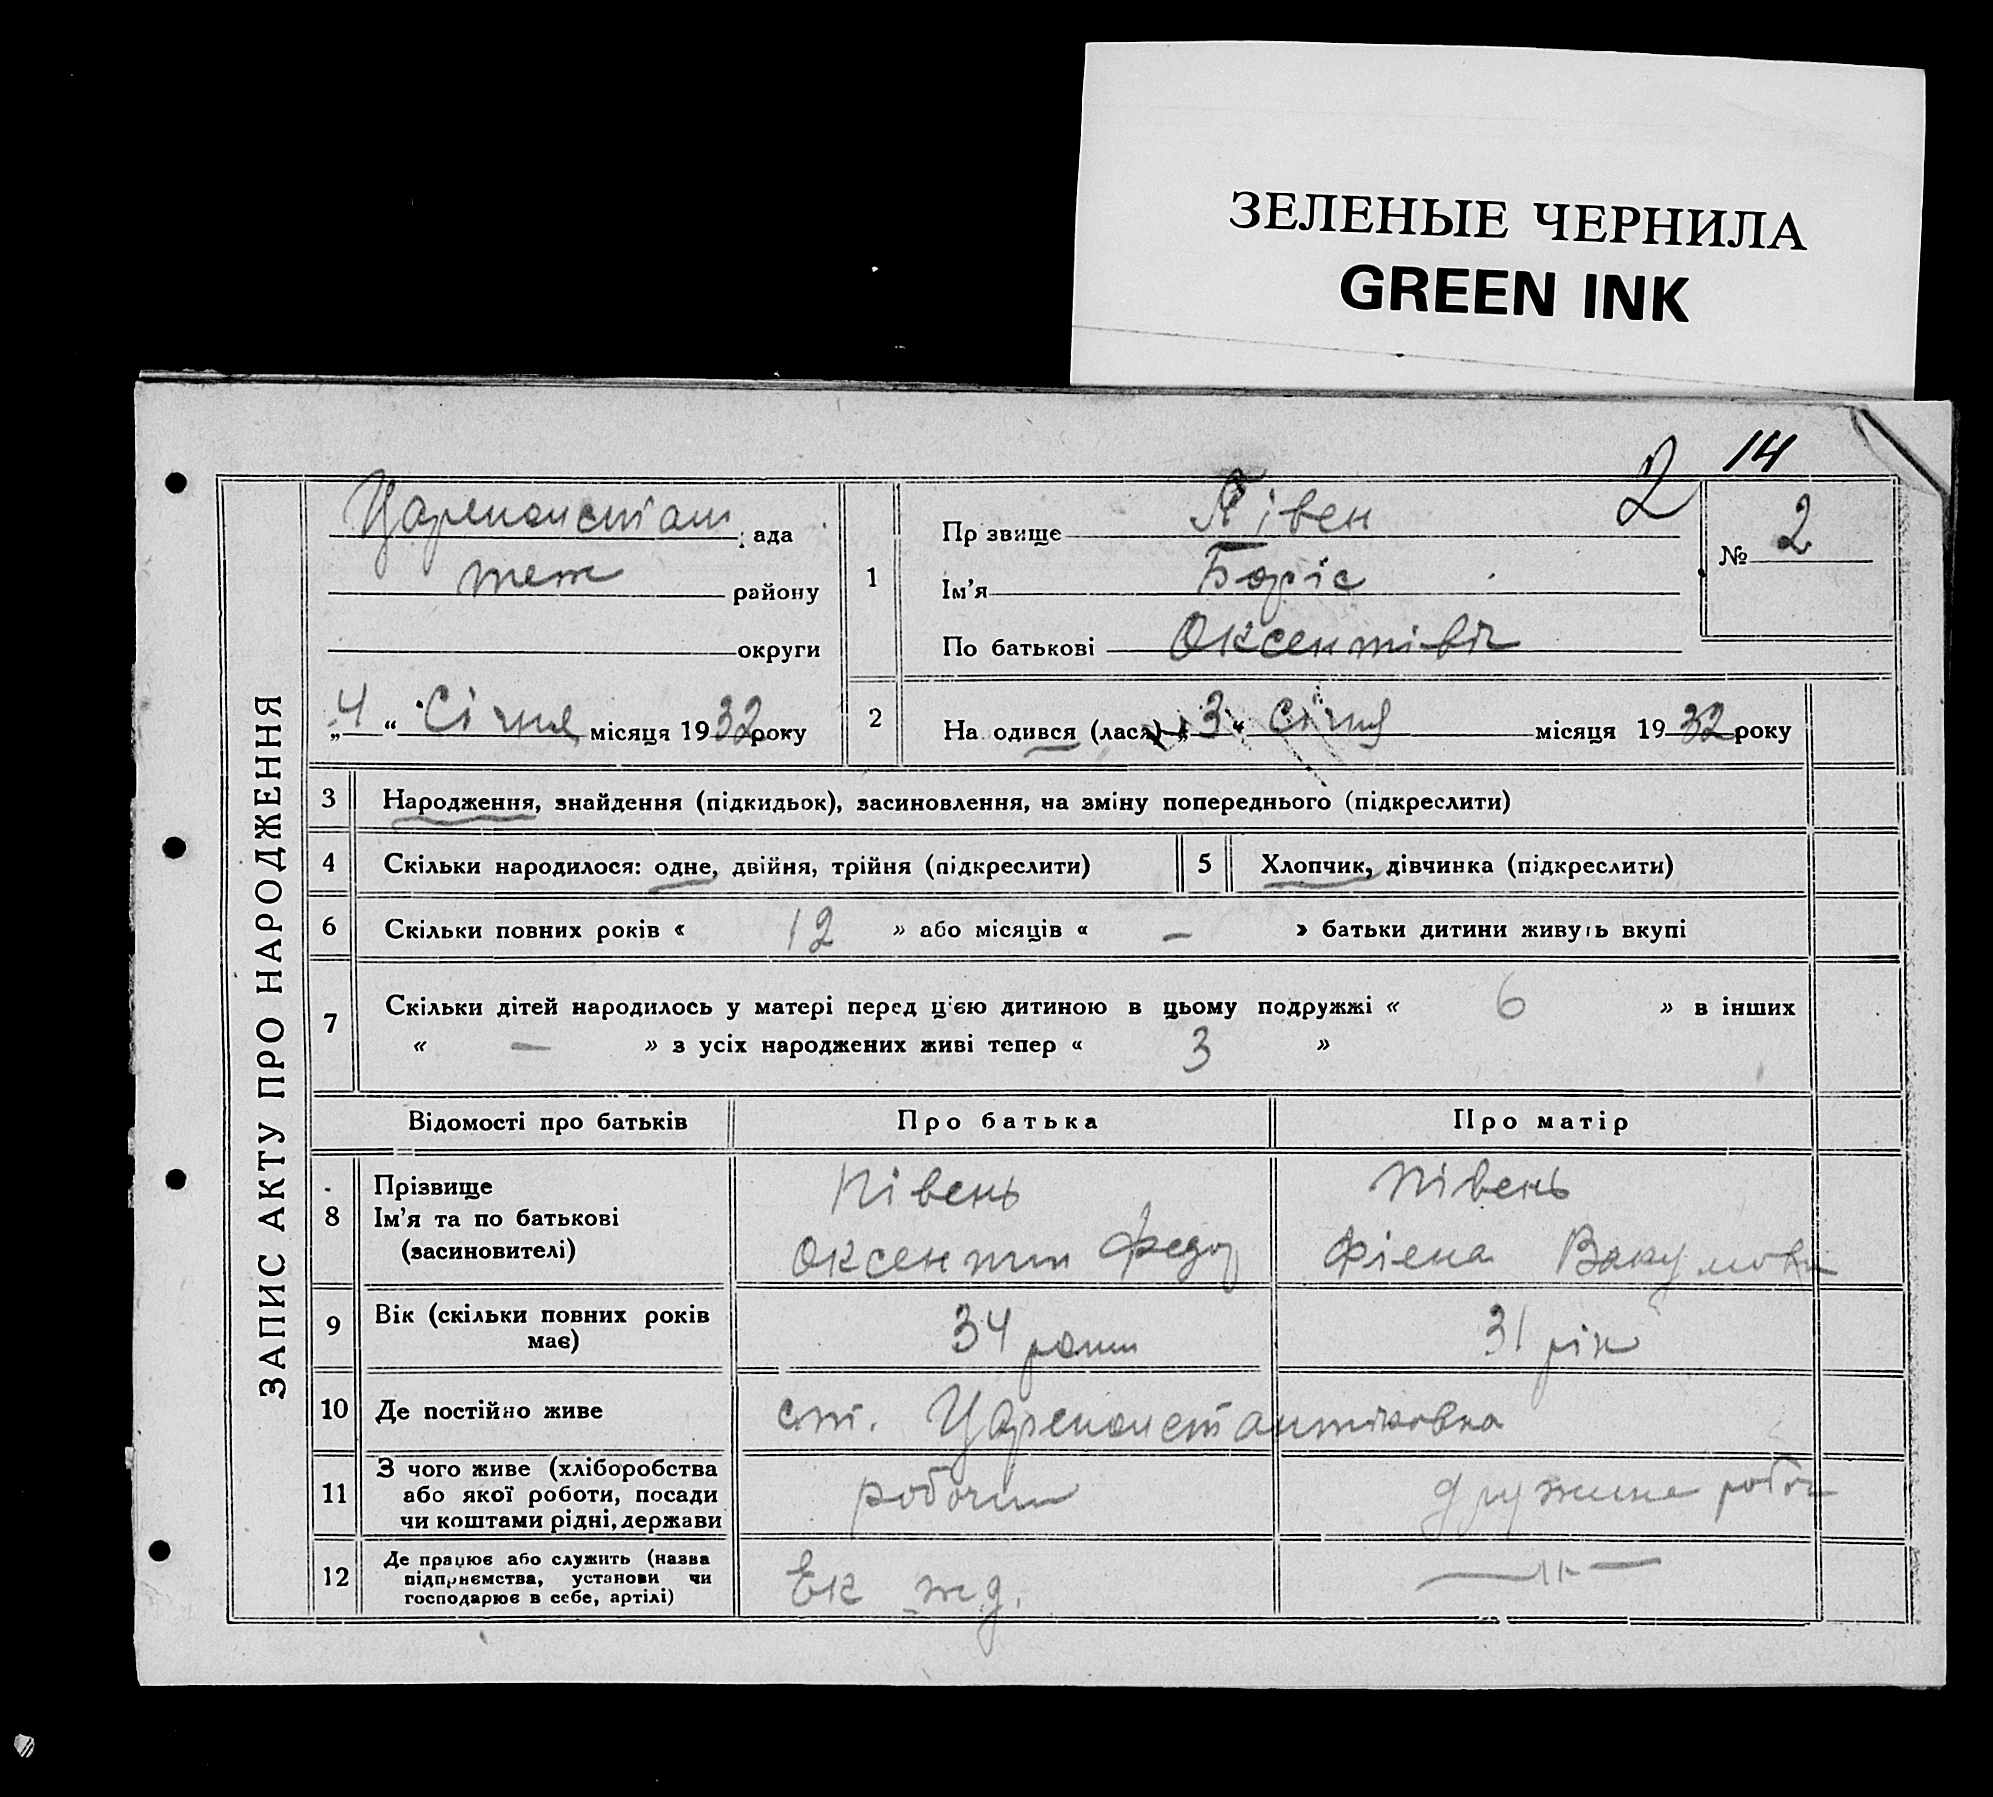 ЗЕЛЕНЫЕ ЧЕРНИЛА
GREEN INK
2 14
ЗАПИС АКТУ ПРО НАРОДЖЕННЯ
Цареконстант рада
теж району
округи
„4“ Січня місяця 1932 року
1
Прізвище Півен
Ім'я Боріс
По батькові Оксентівіч
№ 2
2 Народився (лася) „3“ Січня місяця 1932 року
3 Народження, знайдення (підкидьок), засиновлення, на зміну попереднього (підкреслити)
4 Скільки народилося: одне, двійня, трійня (підкреслити) 5 Хлопчик, дівчинка (підкреслити)
6 Скільки повних років « 12 » або місяців « — » батьки дитини живуть вкупі
7 Скільки дітей народилось у матері перед цією дитиною в цьому подружжі « 6 » в інших
« — » з усіх народжених живі тепер « 3 »
Відомості про батьків Про батька Про матір
8 Прізвище
Ім'я та по батькові
(засиновителі)
Півень
Оксентий Федор
Півень
Фіена Вакумовн
9 Вік (скільки повних років
має)
34 роки 31 рік
10 Де постійно живе ст. Цареконстантіновка
11 З чого живе (хліборобства
або якої роботи, посади
чи коштами рідні, держави
робочий дружина робоч
12 Де працює або служить (назва
підприємства, установи чи
господарює в себе, артілі)
Ек ж.д. —"—